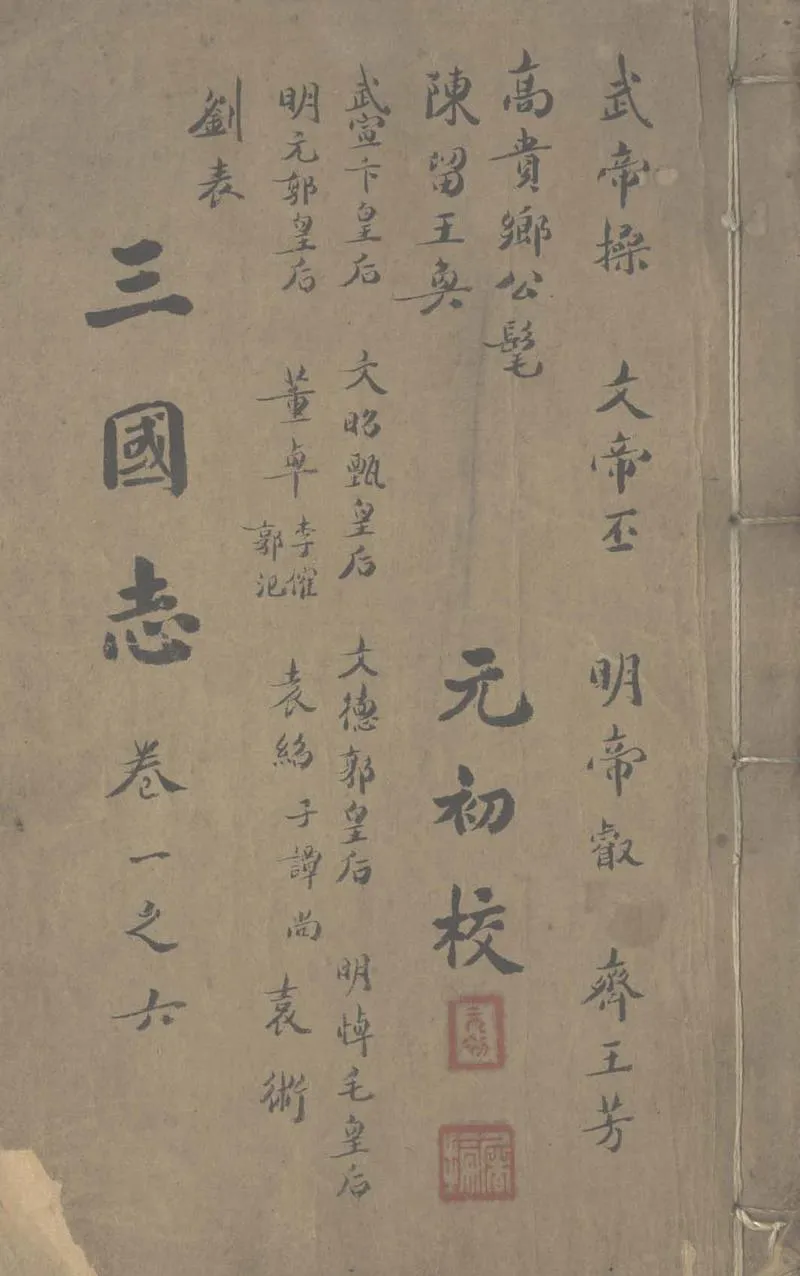 武帝操 文帝丕 明帝叡 齊王芳
高貴鄉公髦
陳留王奐
元初校
武宣卞皇后 文昭甄皇后 文德郭皇后 明悼毛皇后
明元郭皇后 董卓 李傕 郭汜 袁紹 子譚 尚 袁術
劉表
三國志 卷一之六